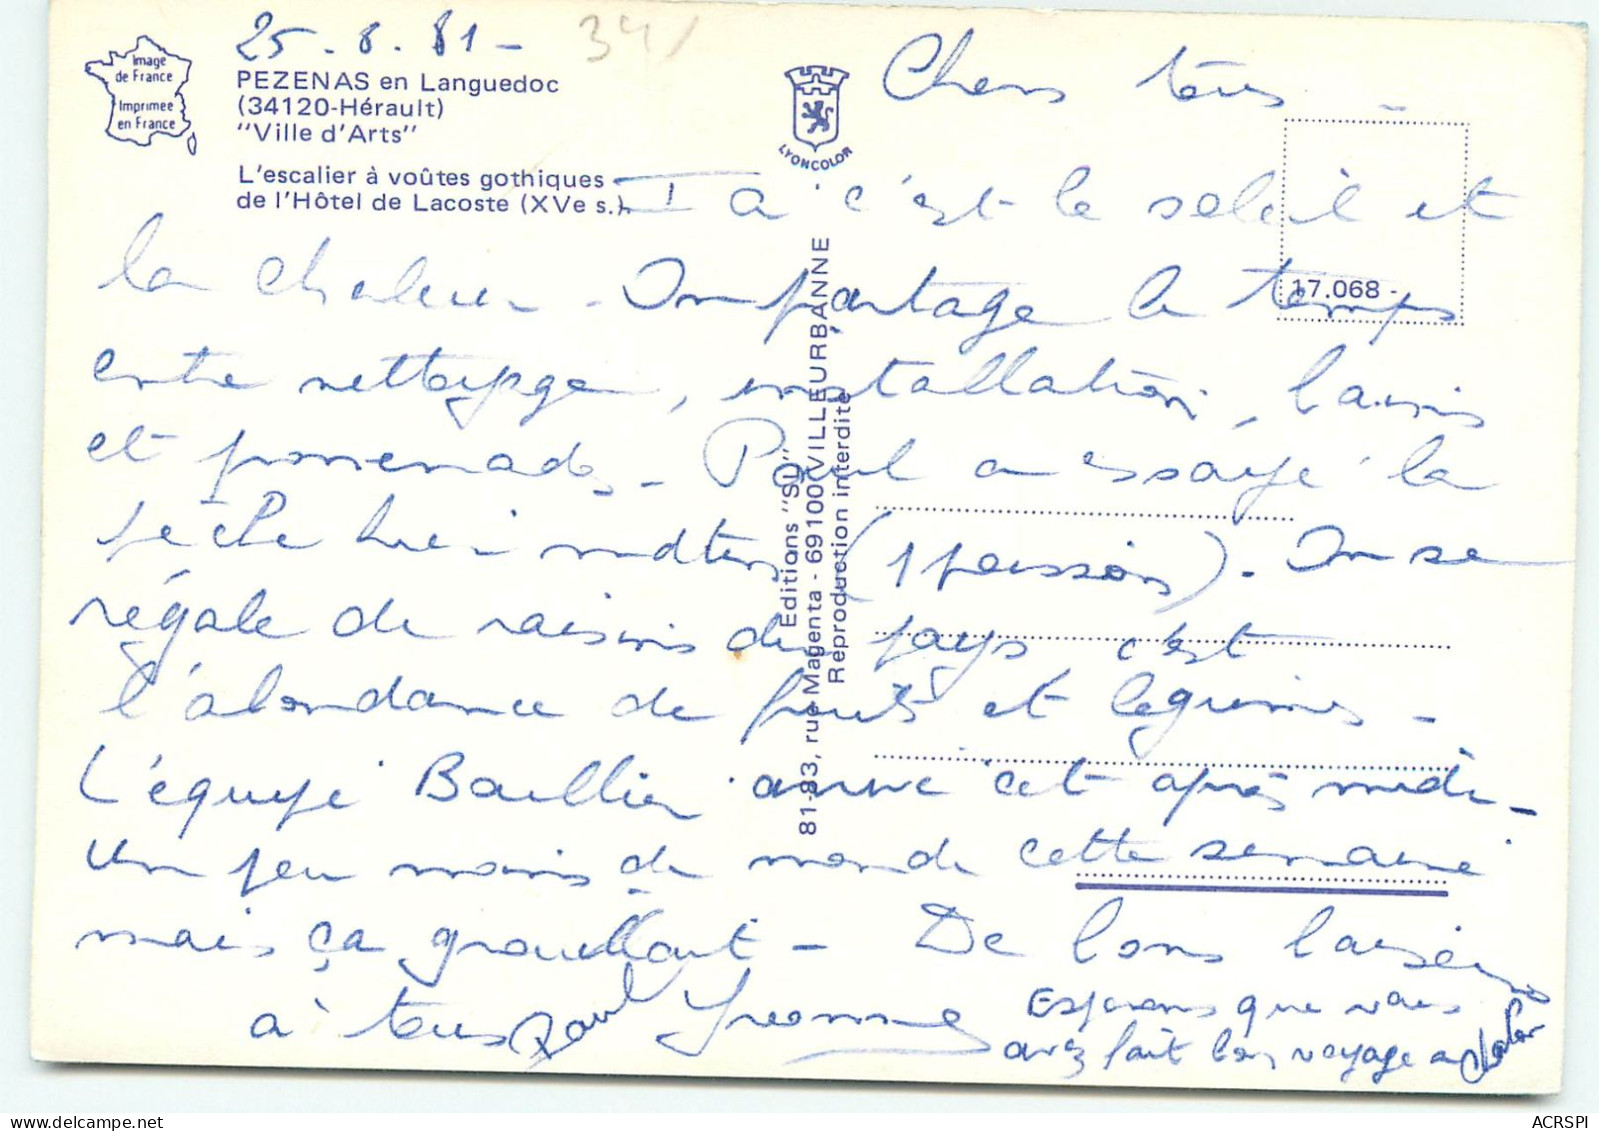 25.8.81 -
34/
Image
de France
Imprimee
en France
PEZENAS en Languedoc
(34120-Hérault)
"Ville d'Arts"
L'escalier à voûtes gothiques
de l'Hôtel de Lacoste (XVe s.).
LYONCOLOR
17.068 -
Editions "SL"
81-83, rue Magenta - 69100 VILLEURBANNE
Reproduction interdite
Chers tous -
c'est le soleil et
la chaleur. On partage le temps
entre nettoyage, installation,
et promenades - Paul a essayé la
pêche hier matin (1 poisson). On se
régale de raisins du pays c'est
l'abondance de fruits et légumes -
L'équipe arrive cet après midi -
Un peu moins de monde cette semaine
mais ça grouillait - De bons baisers
à tous Paul Yvonne
Esperons que vous
avez fait bon voyage
ACRSPI